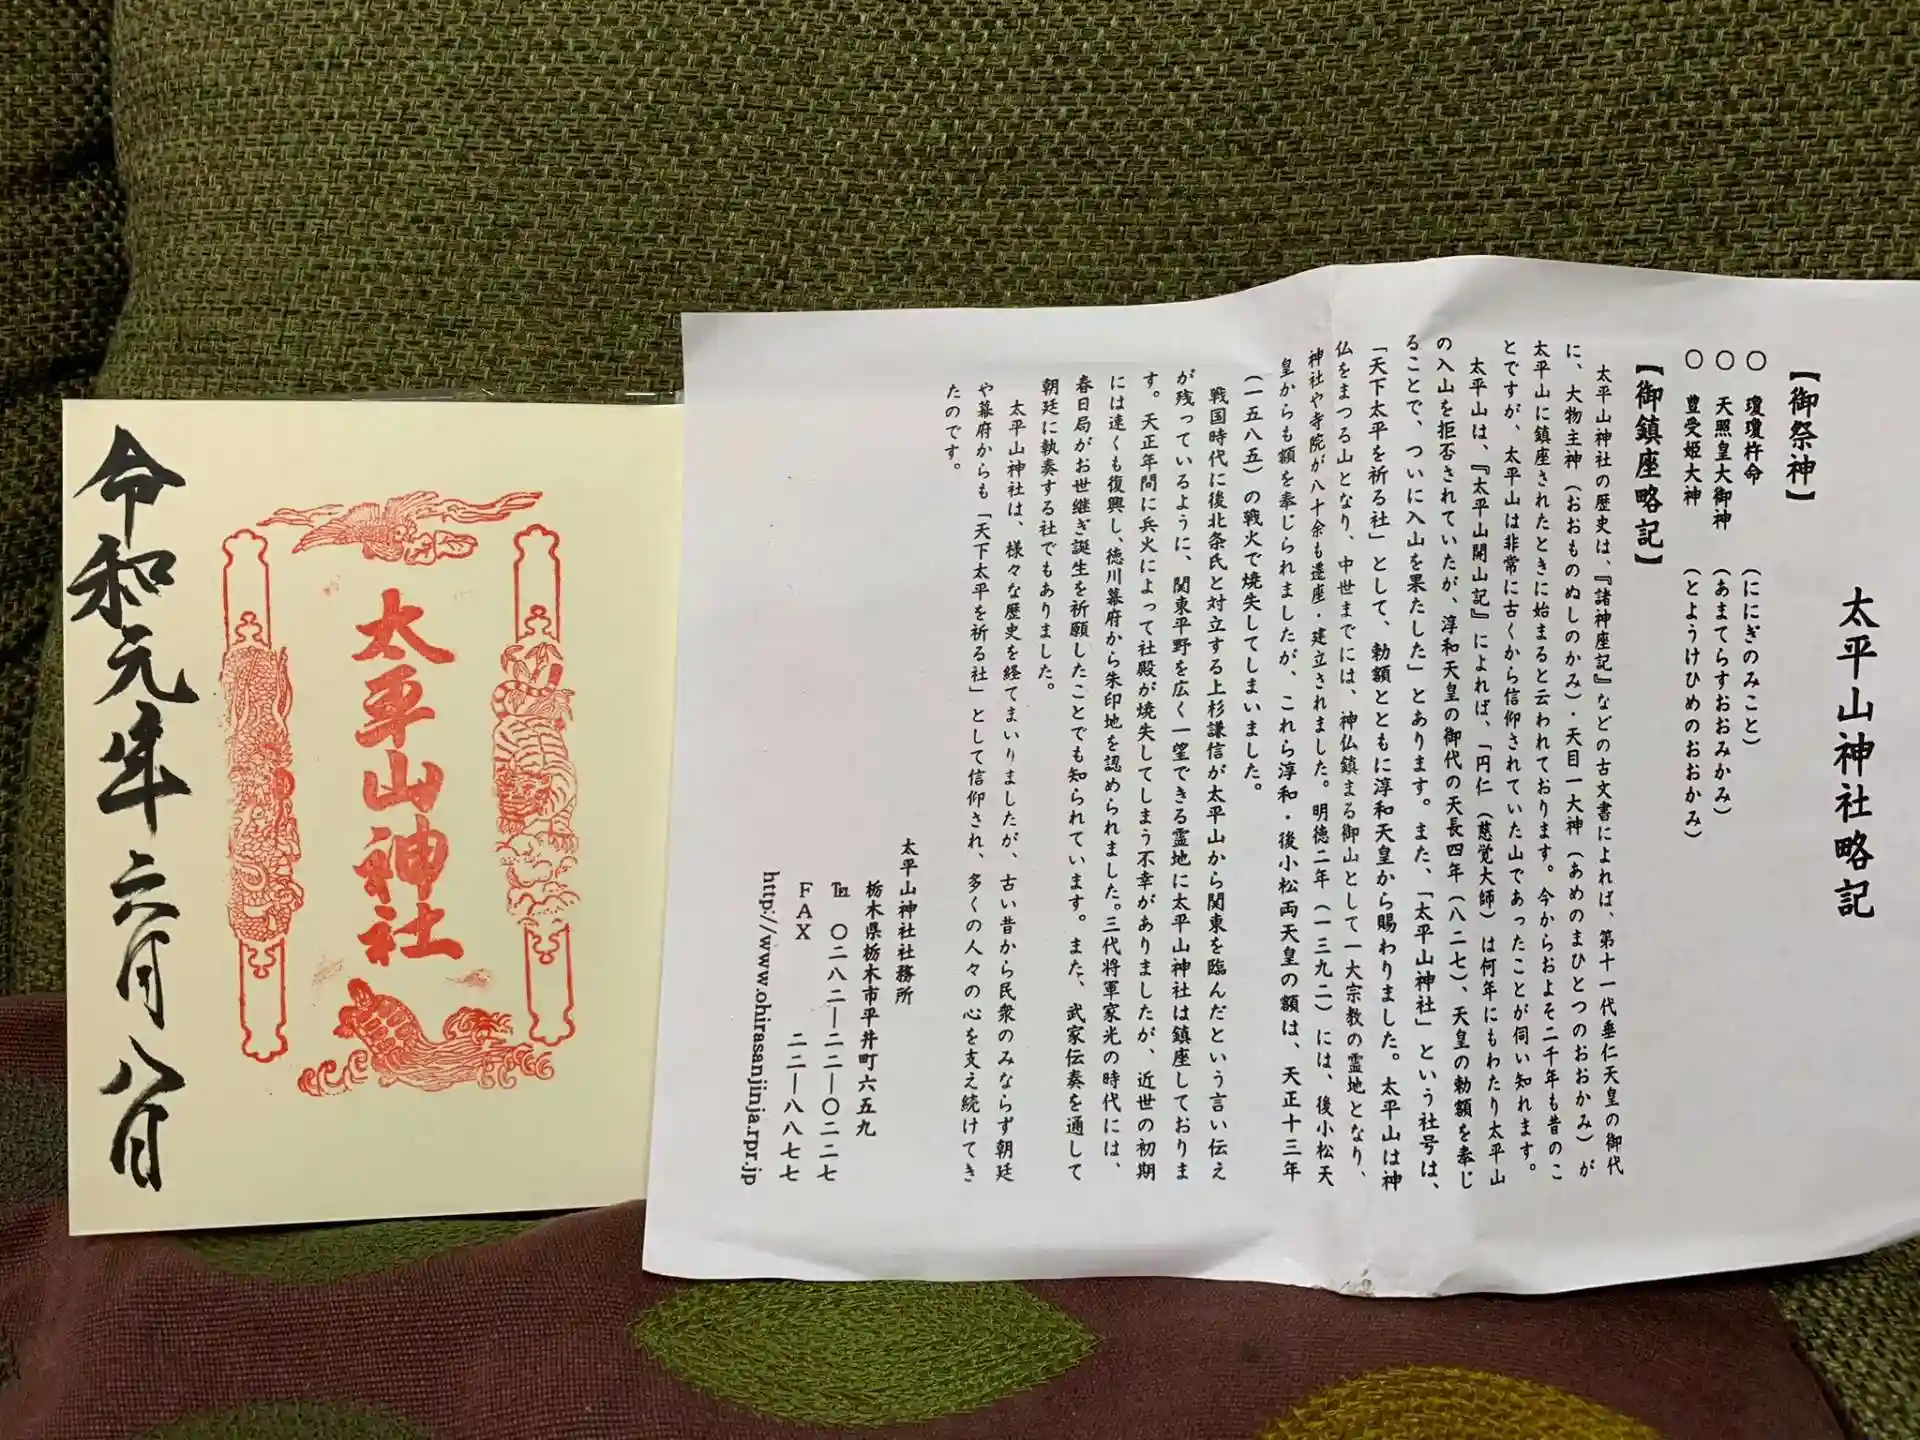 太平山神社略記
【御祭神】
○ 瓊瓊杵命 (ににぎのみこと)
○ 天照皇大御神 (あまてらすおおみかみ)
○ 豊受姫大神 (とようけひめのおおかみ)
【御鎮座略記】
太平山神社の歴史は、『諸神座記』などの古文書によれば、第十一代垂仁天皇の御代
に、大物主神(おおものぬしのかみ)・天目一大神(あめのまひとつのおおかみ)が
太平山に鎮座されたときに始まると云われております。今からおよそ二千年も昔のこ
とですが、太平山は非常に古くから信仰されていた山であったことが伺い知れます。
太平山は、『太平山開山記』によれば、「円仁(慈覚大師)は何年にもわたり太平山
の入山を拒否されていたが、淳和天皇の御代の天長四年(八二七)、天皇の勅額を奉じ
ることで、ついに入山を果たした」とあります。また、「太平山神社」という社号は、
「天下太平を祈る社」として、勅額とともに淳和天皇から賜わりました。太平山は神
仏をまつる山となり、中世までには、神仏鎮まる御山として一大宗教の霊地となり、
神社や寺院が八十余も遷座・建立されました。明徳二年(一三九二)には、後小松天
皇からも額を奉じられましたが、これら淳和・後小松両天皇の額は、天正十三年
(一五八五)の戦火で焼失してしまいました。
戦国時代に後北条氏と対立する上杉謙信が太平山から関東を臨んだという言い伝え
が残っているように、関東平野を広く一望できる霊地に太平山神社は鎮座しておりま
す。天正年間に兵火によって社殿が焼失してしまう不幸がありましたが、近世の初期
には速くも復興し、徳川幕府から朱印地を認められました。三代将軍家光の時代には、
春日局がお世継ぎ誕生を祈願したことでも知られています。また、武家伝奏を通して
朝廷に執奏する社でもありました。
太平山神社は、様々な歴史を経てまいりましたが、古い昔から民衆のみならず朝廷
や幕府からも「天下太平を祈る社」として信仰され、多くの人々の心を支え続けてき
たのです。
太平山神社社務所
栃木県栃木市平井町六五九
℡ ○二八二―二二―○二二七
FAX 二二―八八七七
http://www.ohirasanjinja.rpr.jp
太平山神社
令和元年六月八日